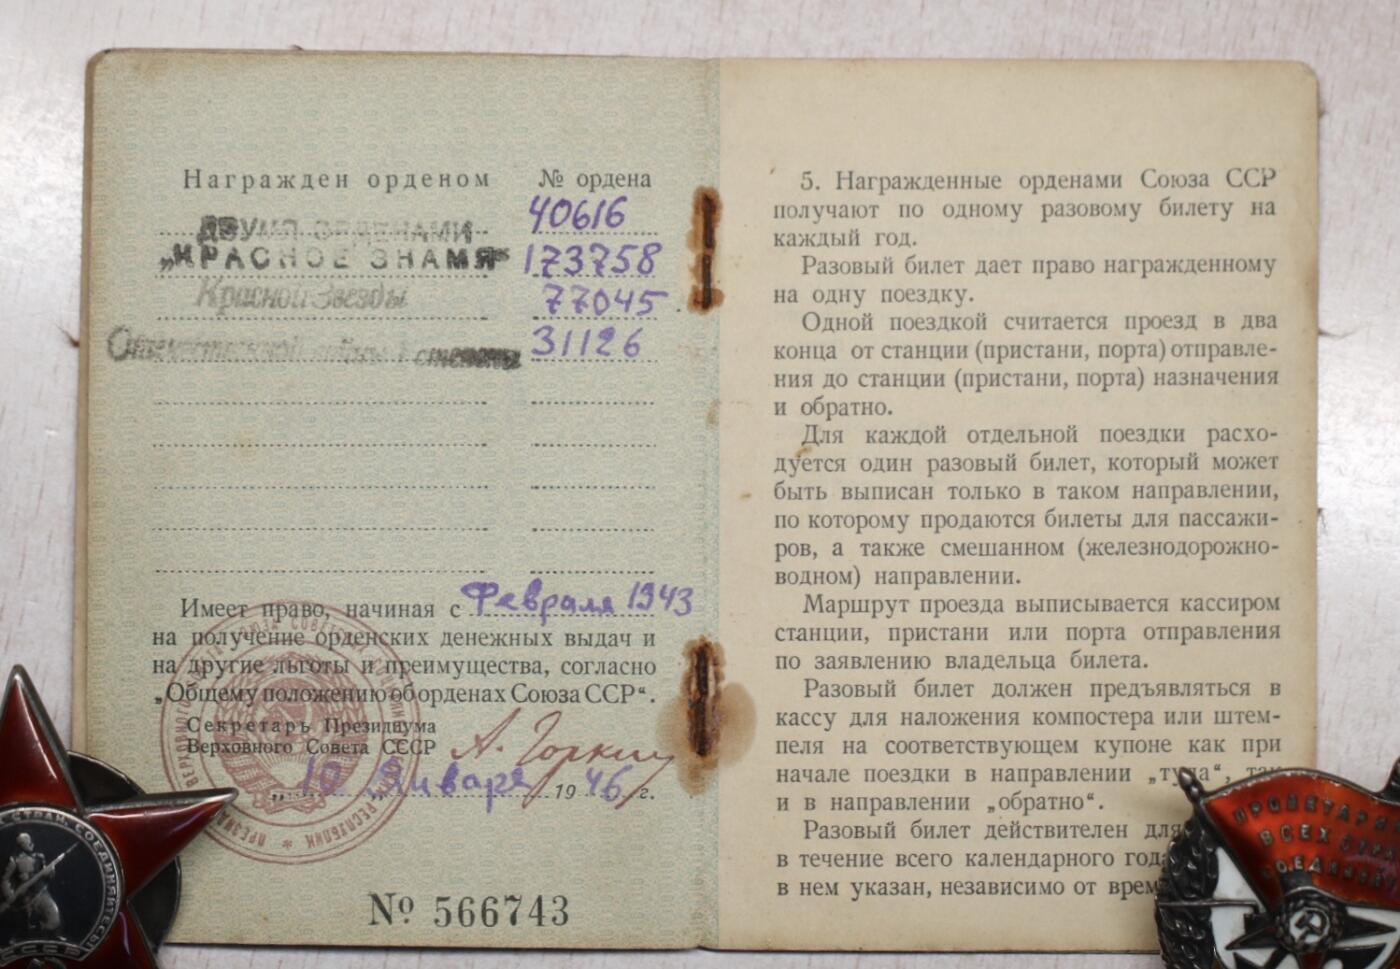 Награжден орденом № ордена
ДВУМЯ ОРДЕНАМИ 40616
„КРАСНОЕ ЗНАМЯ“ 173758
Красной Звезды 77045
Отечественной войны степени 31126
Имеет право, начиная с Февраля 1943
на получение орденских денежных выдач и
на другие льготы и преимущества, согласно
„Общему положению об орденах Союза ССР“.
Секретарь Президиума
Верховного Совета СССР А. Горкин
„10 „Января 1946 г.
№ 566743
5. Награжденные орденами Союза ССР
получают по одному разовому билету на
каждый год.
Разовый билет дает право награжденному
на одну поездку.
Одной поездкой считается проезд в два
конца от станции (пристани, порта) отправле-
ния до станции (пристани, порта) назначения
и обратно.
Для каждой отдельной поездки расхо-
дуется один разовый билет, который может
быть выписан только в таком направлении,
по которому продаются билеты для пассажи-
ров, а также смешанном (железнодорожно-
водном) направлении.
Маршрут проезда выписывается кассиром
станции, пристани или порта отправления
по заявлению владельца билета.
Разовый билет должен предъявляться в
кассу для наложения компостера или штем-
пеля на соответствующем купоне как при
начале поездки в направлении „туда“, так
и в направлении „обратно“.
Разовый билет действителен для
в течение всего календарного года
в нем указан, независимо от врем
СТРАН, СОЕДИНЯЙТЕСЬ
СССР
ПРОЛЕТАРИ
ВСЕХ СТРА
СОЕДИНЯЙ